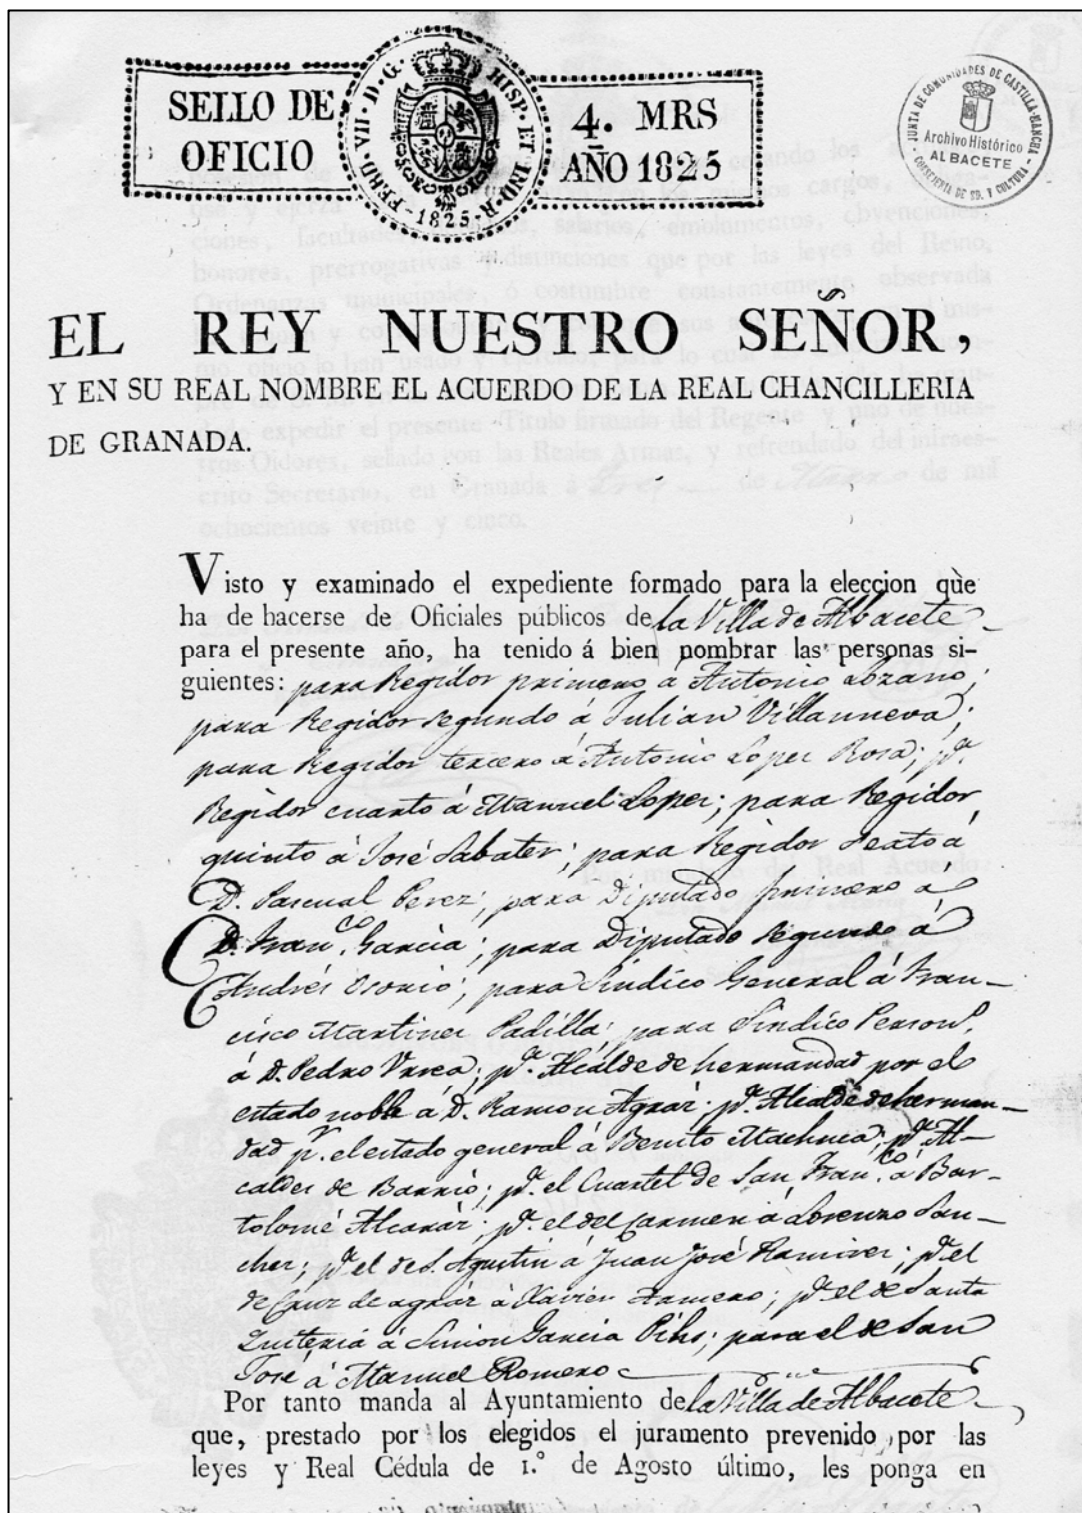 SELLO DE
OFICIO
FERD. VII. D. G. HISP. ET IND. R.
1825
4. MRS
AÑO 1825
JUNTA DE COMUNIDADES DE CASTILLA-MANCHA
Archivo Histórico
ALBACETE
CONSEJERIA DE ED. Y CULTURA
EL REY NUESTRO SEÑOR,
Y EN SU REAL NOMBRE EL ACUERDO DE LA REAL CHANCILLERIA
DE GRANADA.
Visto y examinado el expediente formado para la eleccion que
ha de hacerse de Oficiales públicos de la Villa de Albacete
para el presente año, ha tenido á bien nombrar las personas si-
guientes: para Regidor primero á Antonio Lozano;
para Regidor segundo á Julian Villanueva;
para Regidor tercero á Antonio Lopez Rosa; pª
Regidor cuarto á Manuel Lopez; para Regidor
quinto á José Sabater; para Regidor Sexto á
D. Pascual Perez; para Diputado primero á
D. Franco. Garcia; para Diputado segundo á
Andrés Osorio; para Sindico General á Fran-
cisco Martinez Padilla; para Sindico Person.l
á D. Pedro Urrea; pª. Alcalde de hermandad por el
estado noble á D. Ramon Agraz; pª. Alcalde de herman-
dad pr. el estado general á Benito Machuca; pª. Al-
caldes de Barrio; pª. el Cuartel de San Franco. á Bar-
tolomé Alcaráz; pª. el del Carmen á Lorenzo San-
chez; pª el de S. Agustin á Juan José Ramirez; pª el
de Cruz de agráz á Xavier ; pª el de Santa
Quiteria á Simon Garcia ; para el de San
José á Manuel Romero
Por tanto manda al Ayuntamiento de la Villa de Albacete
que, prestado por los elegidos el juramento prevenido por las
leyes y Real Cédula de 1.º de Agosto último, les ponga en